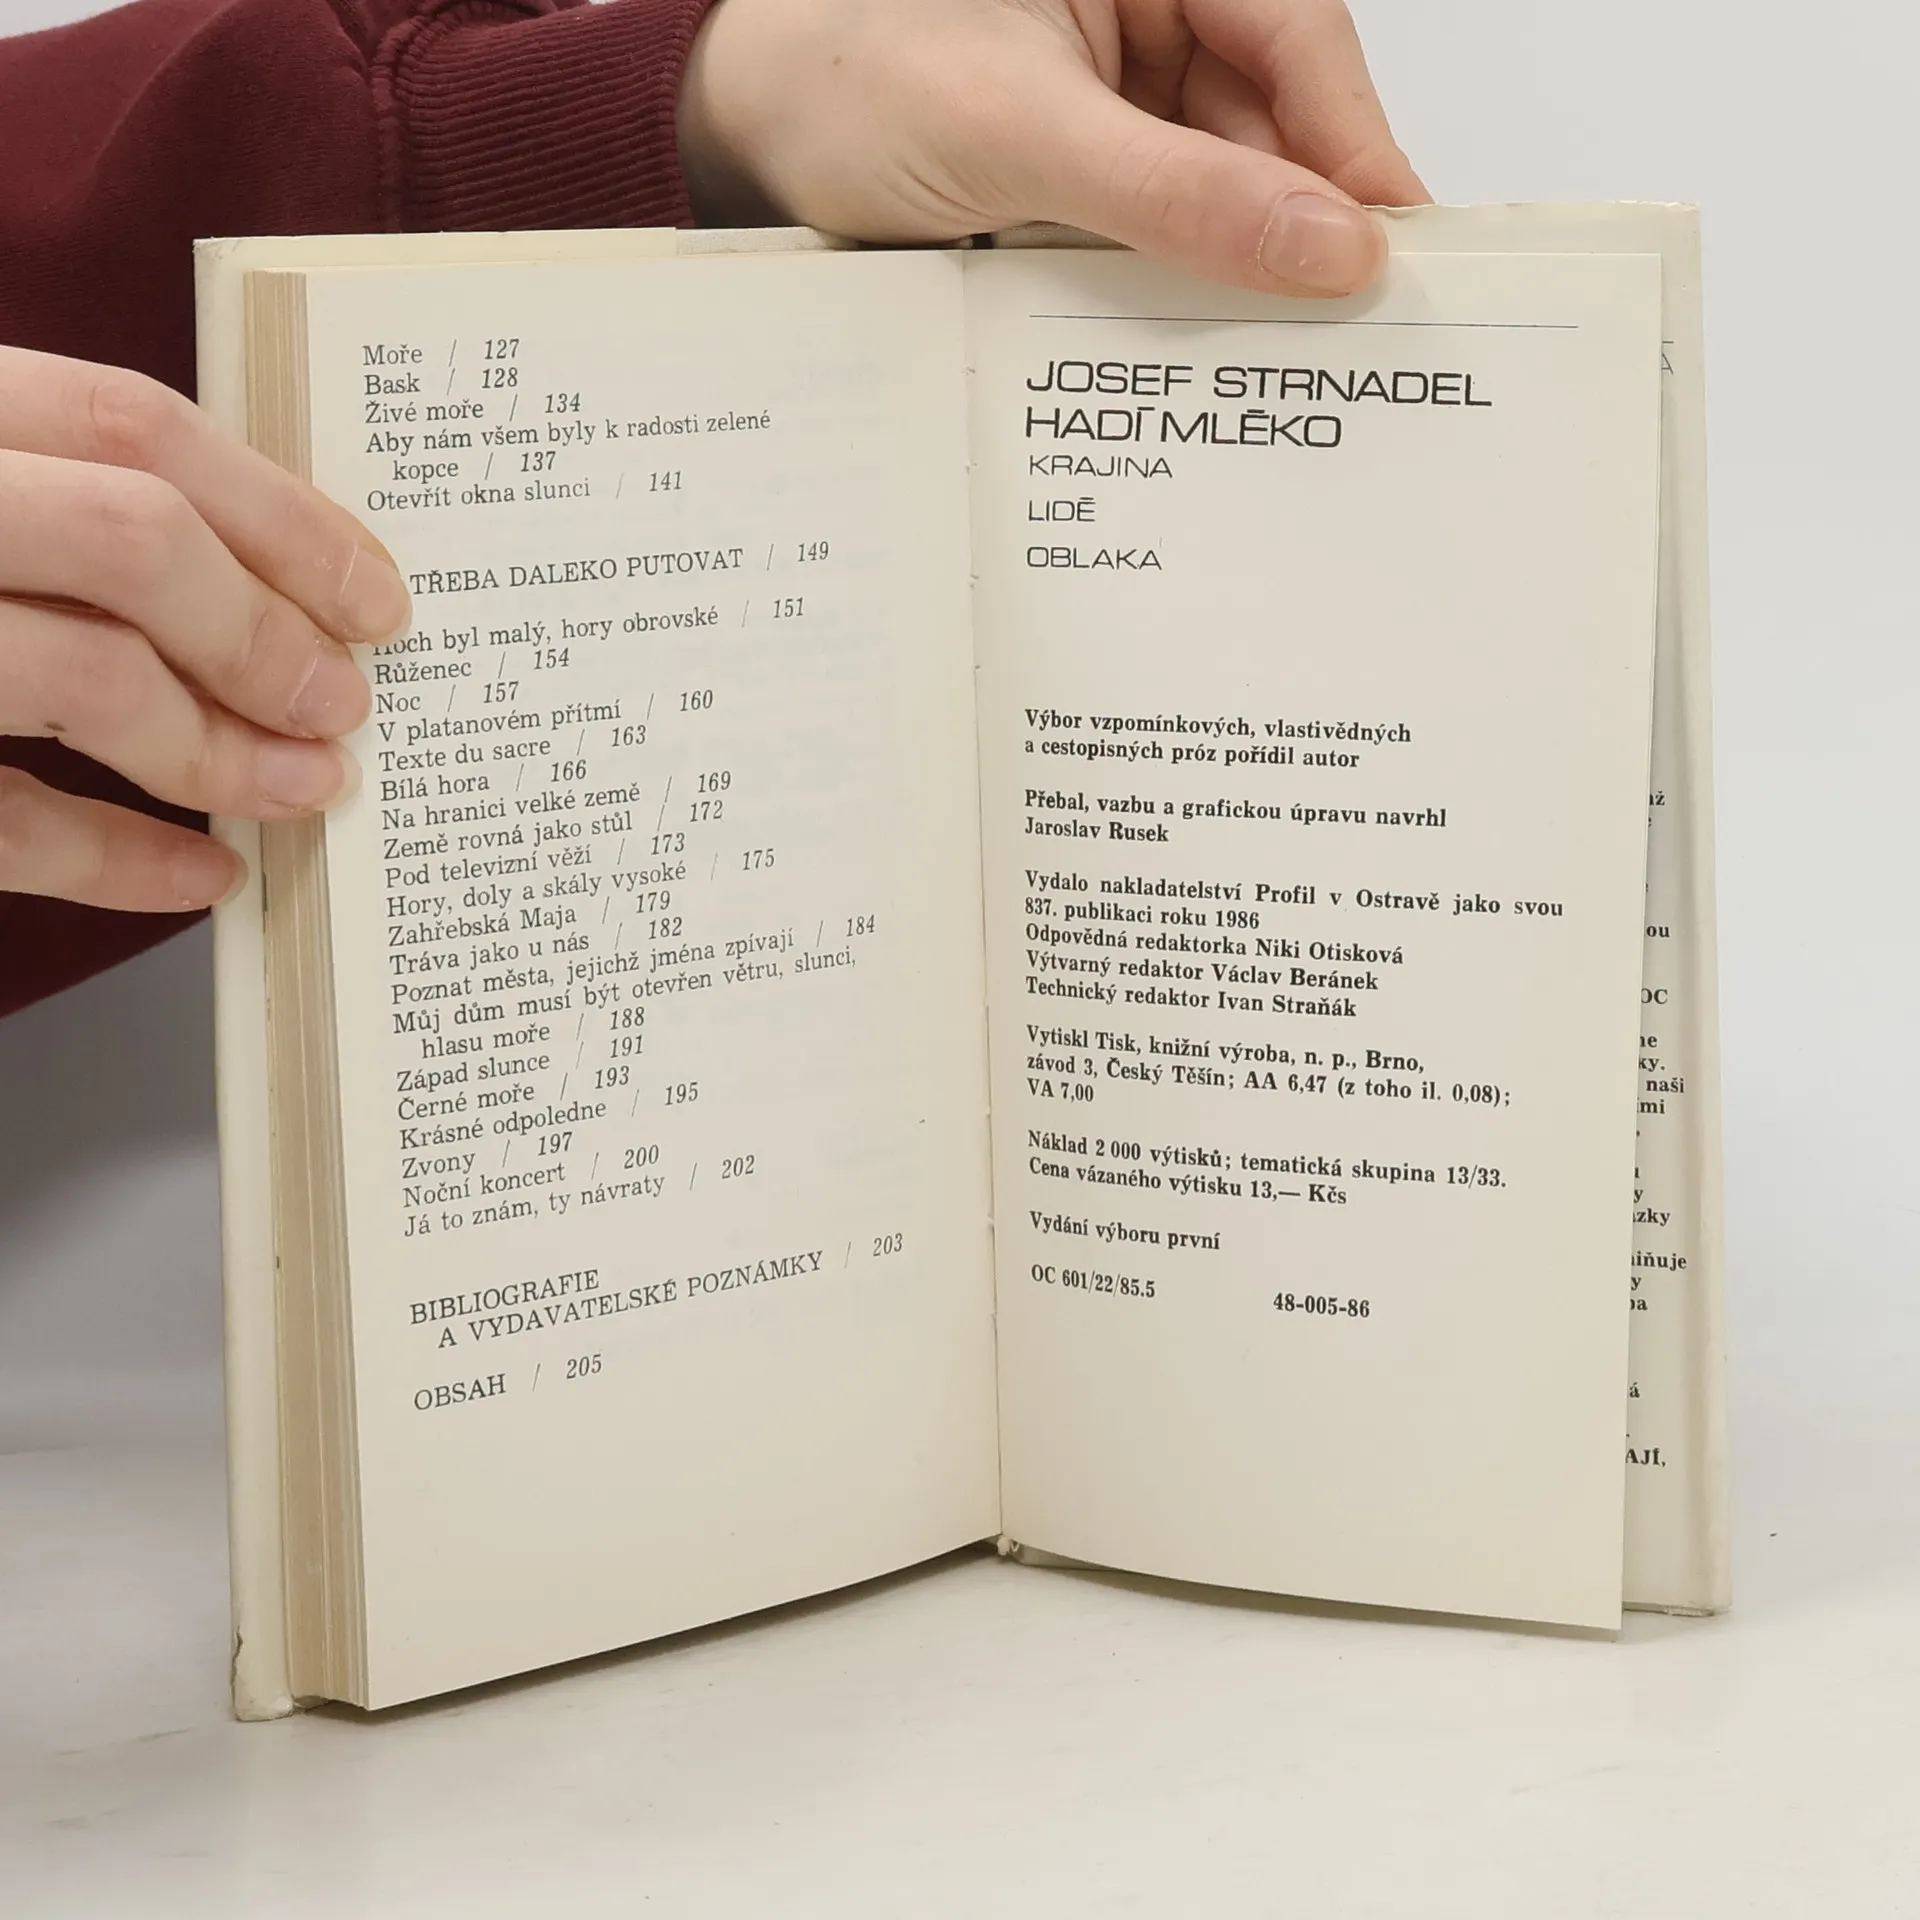 Moře / 127
Bask / 128
Živé moře / 134
Aby nám všem byly k radosti zelené
kopce / 137
Otevřít okna slunci / 141
TŘEBA DALEKO PUTOVAT / 149
byl malý, hory obrovské / 151
Růženec / 154
Noc / 157
V platanovém přítmí / 160
Texte du sacre / 163
Bílá hora / 166
Na hranici velké země / 169
Země rovná jako stůl / 172
Pod televizní věží / 173
Hory, doly a skály vysoké / 175
Zahřebská Maja / 179
Tráva jako u nás / 182
Poznat města, jejichž jména zpívají / 184
Můj dům musí být otevřen větru, slunci,
hlasu moře / 188
Západ slunce / 191
Černé moře / 193
Krásné odpoledne / 195
Zvony / 197
Noční koncert / 200
Já to znám, ty návraty / 202
BIBLIOGRAFIE
A VYDAVATELSKÉ POZNÁMKY / 203
OBSAH / 205
JOSEF STRNADEL
HADÍ MLÉKO
KRAJINA
LIDÉ
OBLAKA
Výbor vzpomínkových, vlastivědných
a cestopisných próz pořídil autor
Přebal, vazbu a grafickou úpravu navrhl
Jaroslav Rusek
Vydalo nakladatelství Profil v Ostravě jako svou
837. publikaci roku 1986
Odpovědná redaktorka Niki Otisková
Výtvarný redaktor Václav Beránek
Technický redaktor Ivan Straňák
Vytiskl Tisk, knižní výroba, n. p., Brno,
závod 3, Český Těšín; AA 6,47 (z toho il. 0,08);
VA 7,00
Náklad 2 000 výtisků; tematická skupina 13/33.
Cena vázaného výtisku 13,— Kčs
Vydání výboru první
OC 601/22/85.5 48-005-86
naši